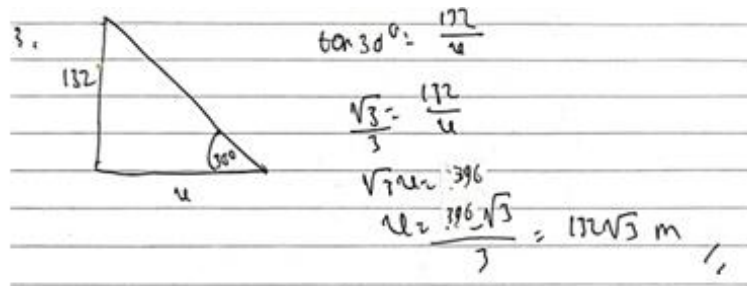 3.
132
30°
u
tan 30° = 132/u
√3/3 = 132/u
√3 u = 396
u = 396√3/3 = 132√3 m //